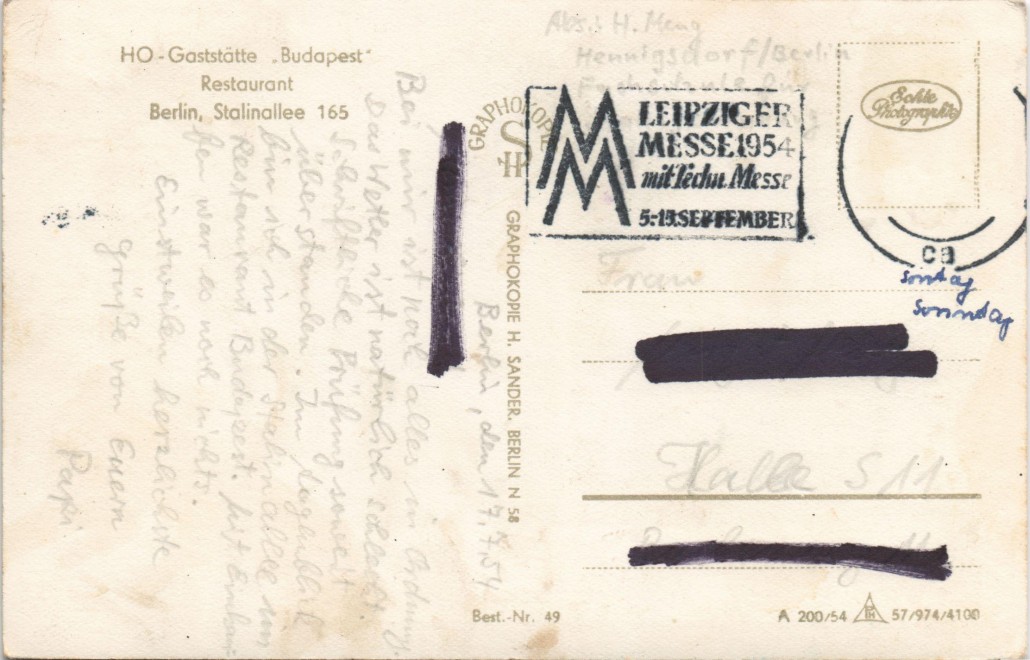 HO-Gaststätte „Budapest"
Restaurant
Berlin, Stalinallee 165
Berlin, den 17.7.54
Bei mir ist noch alles in Ordnung.
Das Weter ist natürlich schlecht.
Schriftliche Prüfung soweit
überstanden. Im Augenblick
bin ich in der Stalinallee im
Restaurant Budapest. Mit Einkau-
fen war es noch nichts.
Einstweilen herzlichste
Grüße von Euern
Papi
GRAPHOKOPIE
SH
GRAPHOKOPIE H. SANDER, BERLIN N 58
Best.-Nr. 49
Abs.: H. Meng
Hennigsdorf/Berlin
Fachschule für
MM
LEIPZIGER
MESSE 1954
mit Techn. Messe
5.-15. SEPTEMBER
Echte
Photographie
ca
sontag
sonntag
Frau
Halle S 11
A 200/54 57/974/4100